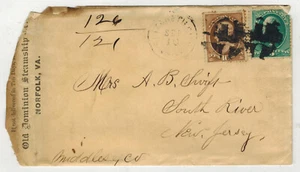 126
121
Old Dominion Steamship
NORFOLK, VA.
Mrs A. B. Swift
South River
New Jersey.
Middlesex Co